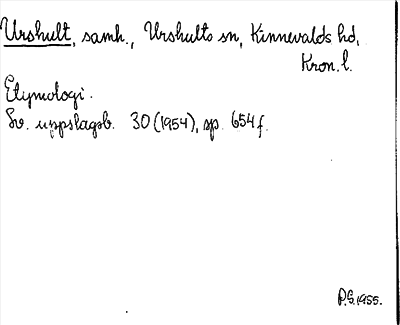 Urshult, samh., Urshults sn, Kinnevalds hd,
Kron. l.
Etymologi.
Sv. uppslagsb. 30 (1954), sp. 654 f.
P.G. 1955.